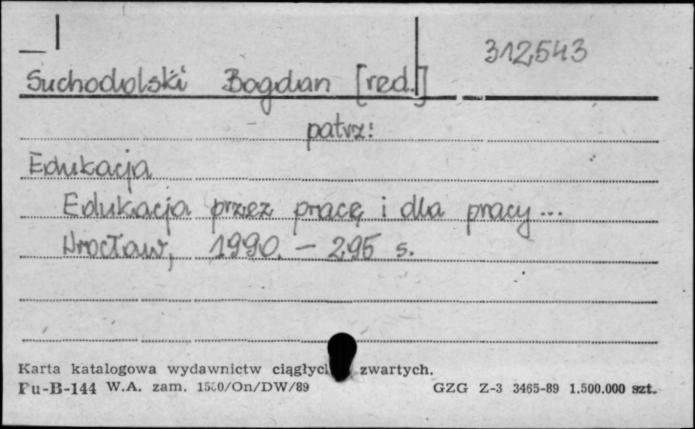 312543
Suchodolski Bogdan [red.]
patrz:
Edukacja
Edukacja przez pracę i dla pracy...
Wrocław, 1990. - 295 s.
Karta katalogowa wydawnictw ciągłych zwartych.
Pu-B-144 W.A. zam. /On/DW/89 GZG Z-3 3465-89 1.500.000 szt.